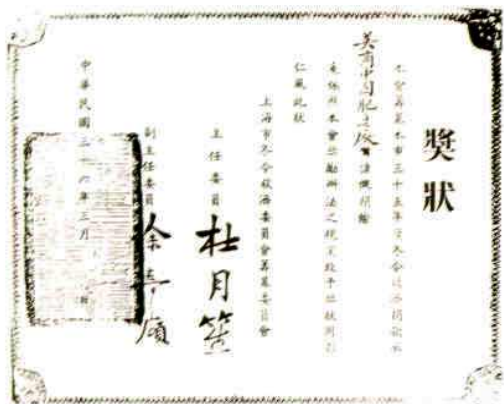 獎狀
本會籌募本市三十五年度冬令救濟捐款承
英商中國肥皂公司慷慨捐輸
本會獎勵辦法之規定致予獎狀用彰
仁風此狀
上海市冬令救濟委員會籌募委員會
主任委員 杜月笙
副主任委員
中華民國三十六年三月 日